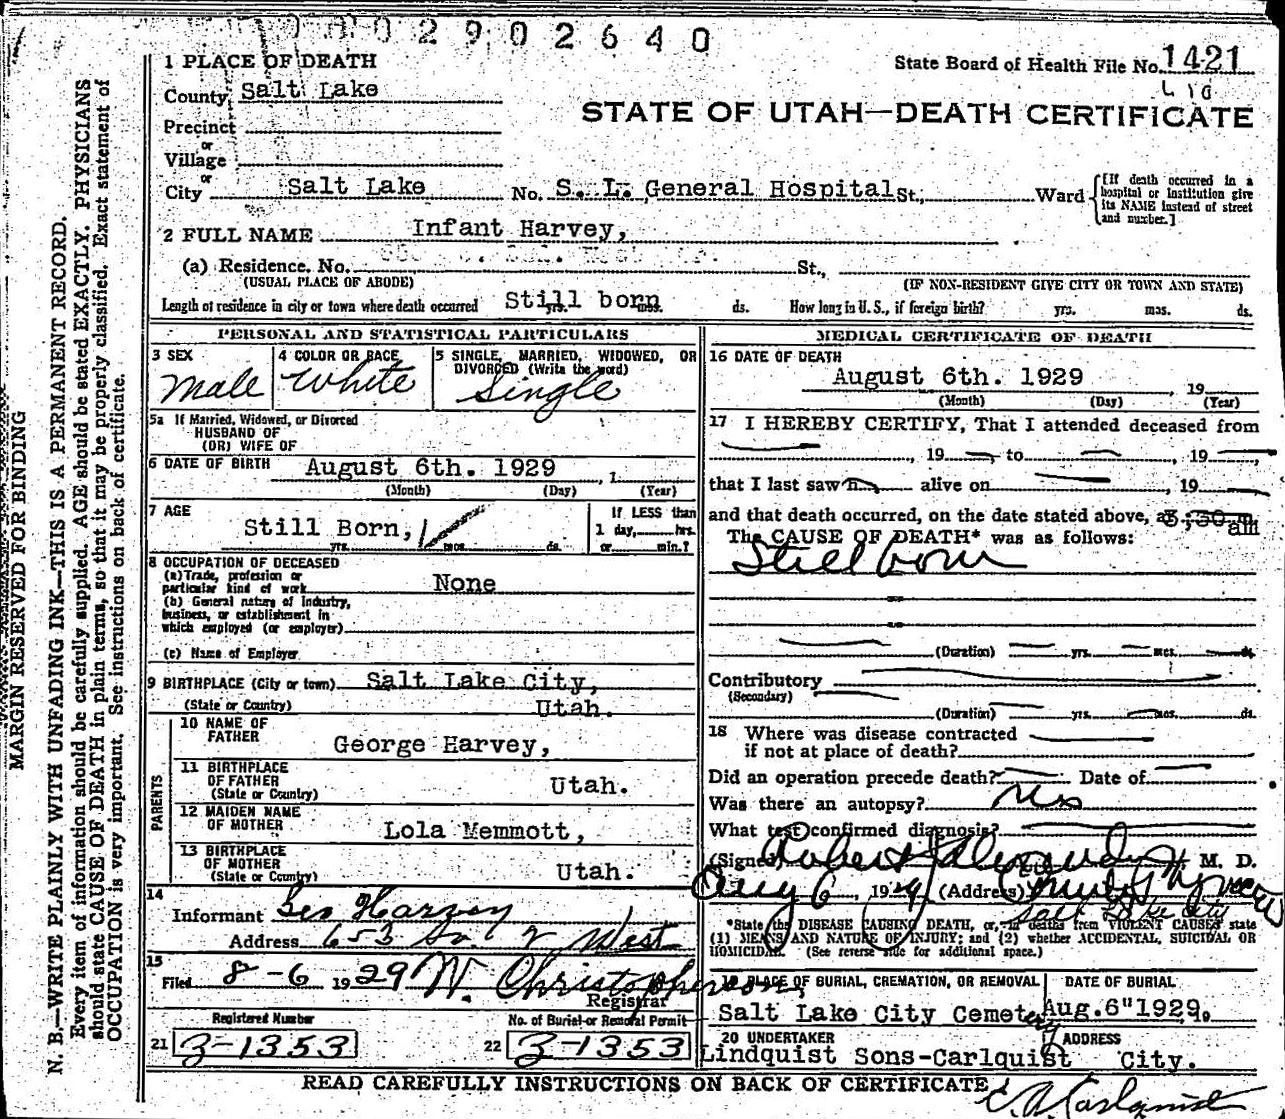 002902640
1 PLACE OF DEATH
State Board of Health File No. 1421
County Salt Lake
STATE OF UTAH—DEATH CERTIFICATE
Precinct
or
Village
or
City Salt Lake No. S. L. General Hospital St., Ward
[If death occurred in a hospital or institution give its NAME instead of street and number.]
2 FULL NAME Infant Harvey,
(a) Residence. No. St.,
(USUAL PLACE OF ABODE) (IF NON-RESIDENT GIVE CITY OR TOWN AND STATE)
Length of residence in city or town where death occurred Still born yrs. mos. ds. How long in U. S., if foreign birth? yrs. mos. ds.
PERSONAL AND STATISTICAL PARTICULARS
3 SEX
Male
4 COLOR OR RACE
White
5 SINGLE, MARRIED, WIDOWED, OR
DIVORCED (Write the word)
Single
5a If Married, Widowed, or Divorced
HUSBAND OF
(OR) WIFE OF
6 DATE OF BIRTH August 6th. 1929 , 1
(Month) (Day) (Year)
7 AGE
Still Born,
yrs. mos. ds.
If LESS than
1 day, hrs.
or min.?
8 OCCUPATION OF DECEASED
(a) Trade, profession or
particular kind of work None
(b) General nature of Industry,
business, or establishment in
which employed (or employer)
(c) Name of Employer
9 BIRTHPLACE (City or town) Salt Lake City,
(State or Country) Utah.
PARENTS
10 NAME OF
FATHER George Harvey,
11 BIRTHPLACE
OF FATHER Utah.
(State or Country)
12 MAIDEN NAME
OF MOTHER Lola Memmott,
13 BIRTHPLACE
OF MOTHER Utah.
(State or Country)
14
Informant Geo Harvey
Address 653 So 2 West
15
Filed 8-6 1929 W. Christopherson,
Registrar
Registered Number
21 3-1353
No. of Burial or Removal Permit
22 3-1353
MEDICAL CERTIFICATE OF DEATH
16 DATE OF DEATH
August 6th. 1929 19
(Month) (Day) (Year)
17 I HEREBY CERTIFY, That I attended deceased from
, 19 to , 19
that I last saw h alive on , 19
and that death occurred, on the date stated above, at 3;30 m am
The CAUSE OF DEATH* was as follows:
Still born
(Duration) yrs. mos. ds.
Contributory
(Secondary)
(Duration) yrs. mos. ds.
18 Where was disease contracted
if not at place of death?
Did an operation precede death? Date of
Was there an autopsy?
What test confirmed diagnosis?
(Signed) Robert Alexander M. D.
Aug 6, 1929 (Address)
Salt Lake City
*State the DISEASE CAUSING DEATH, or, in deaths from VIOLENT CAUSES state
(1) MEANS AND NATURE OF INJURY; and (2) whether ACCIDENTAL, SUICIDAL OR
HOMICIDAL. (See reverse side for additional space.)
19 PLACE OF BURIAL, CREMATION, OR REMOVAL
Salt Lake City Cemetery
DATE OF BURIAL
Aug. 6" 1929.
20 UNDERTAKER
Lindquist Sons-Carlquist
ADDRESS
City.
READ CAREFULLY INSTRUCTIONS ON BACK OF CERTIFICATE
MARGIN RESERVED FOR BINDING
N. B.—WRITE PLAINLY WITH UNFADING INK—THIS IS A PERMANENT RECORD.
Every item of information should be carefully supplied. AGE should be stated EXACTLY. PHYSICIANS
should state CAUSE OF DEATH in plain terms, so that it may be properly classified. Exact statement of
OCCUPATION is very important. See instructions on back of certificate.